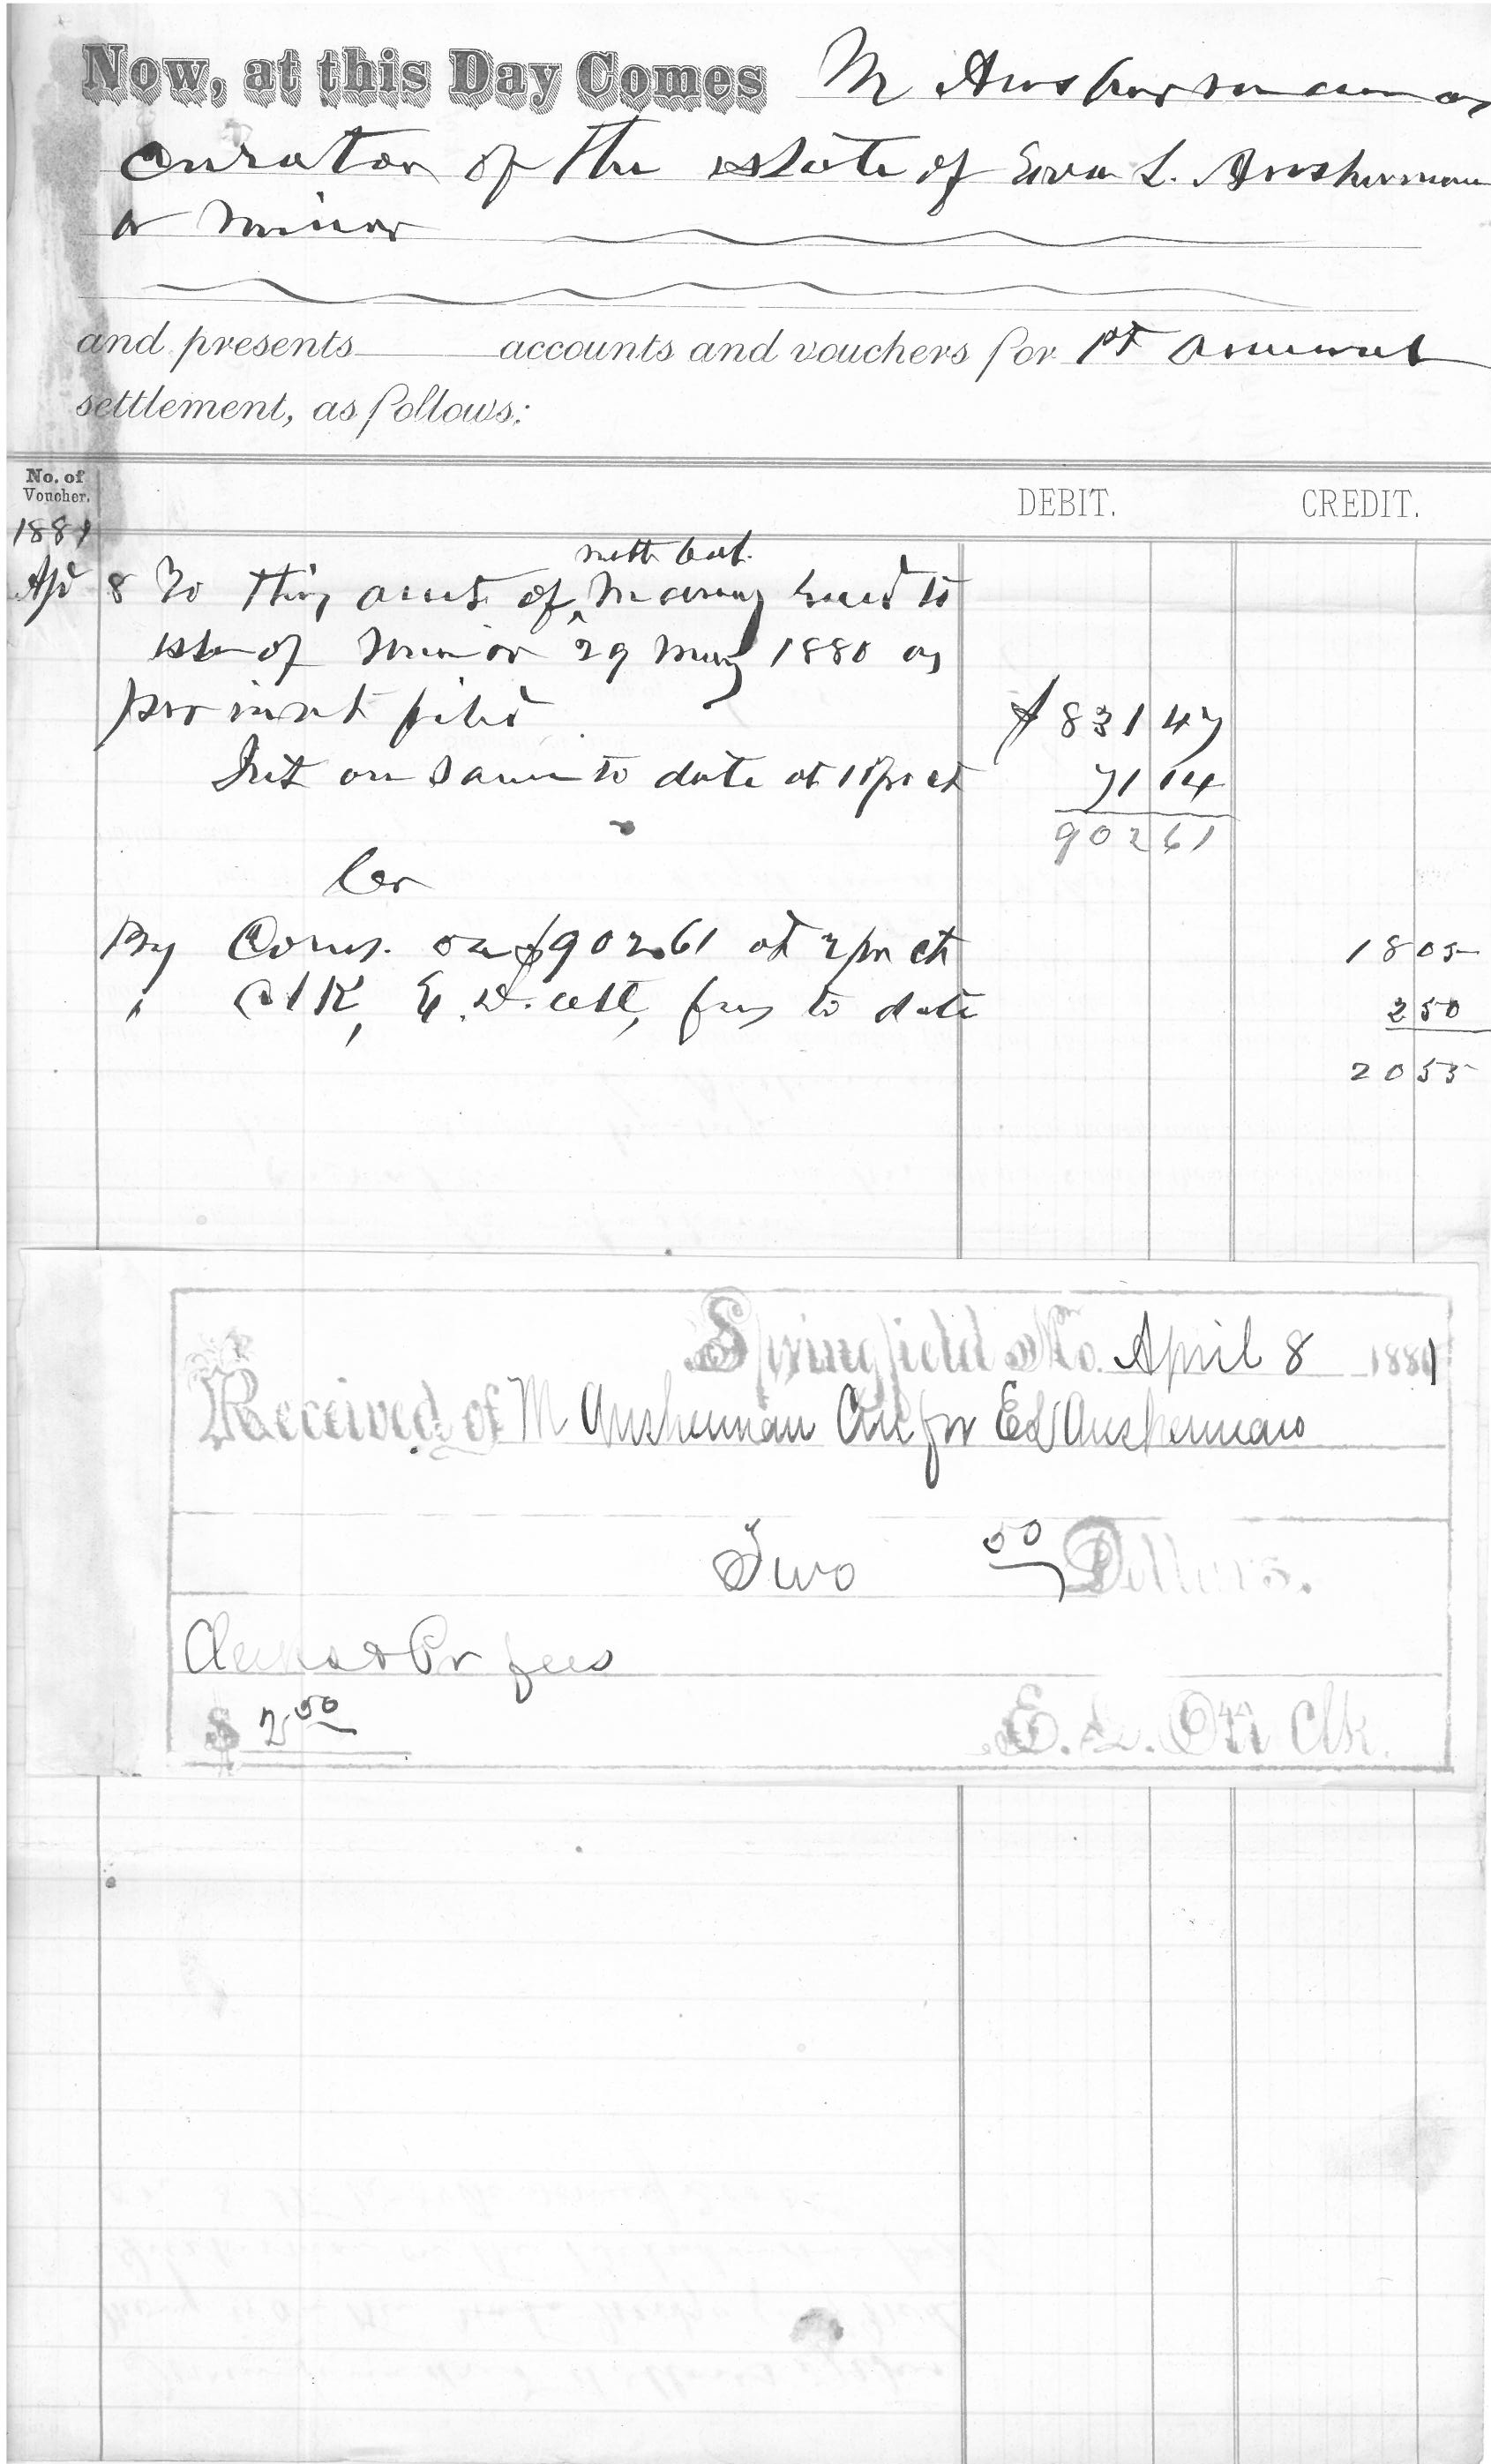 Now, at this Day Comes M Ausherman as
curator of the estate of Eva L. Ausherman
a minor
and presents accounts and vouchers for 1st annual
settlement, as follows:
No. of
Voucher.
DEBIT. CREDIT.
1881
nett bal.
Apl 8 To this amt of money to
est of minor 29 May 1880 as
per invt filed $831 47
Int on same to date at 10 pr ct 71 14
902 61
Cr
By Coms. on $902.61 at 2 pr ct 18 05
" clk, fees to date 2 50
20 55
Springfield Mo. April 8 1881
Received of M Ausherman Cur for E L Ausherman
Two 50 Dollars.
Clerks & Pr fees
$ 2 50
E. D. Ott Clk.